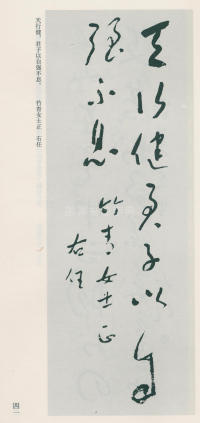 天行健君子以自
强不息
竹青女士正
右任
天行健，君子以自强不息。 竹青女士正 右任
四一